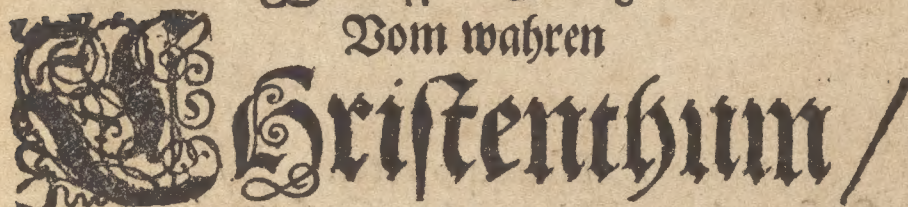 Vom wahren
CHristenthum /